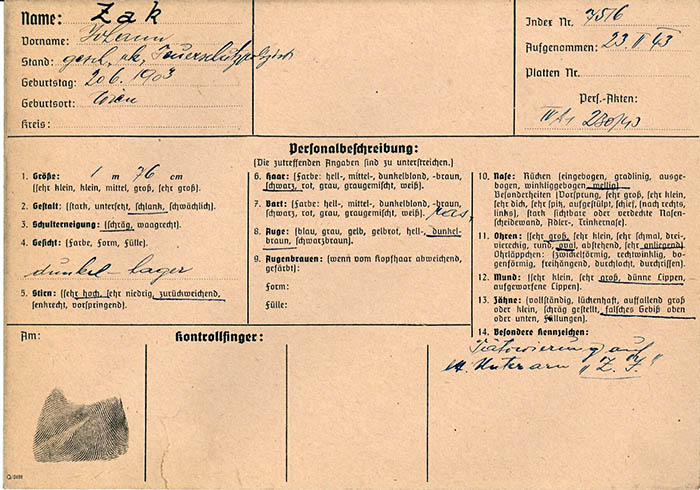 Name: Zak
Vorname: Johann
Stand: gesch., rk, Feuerschutzpolizist
Geburtstag: 20.6.1903
Geburtsort: Wien
Kreis:
Index Nr. 7516
Aufgenommen: 23.II 43
Platten Nr.
Pers.-Akten:
280/43
Personalbeschreibung:
(Die zutreffenden Angaben sind zu unterstreichen.)
1. Größe: 1 m 76 cm
(sehr klein, klein, mittel, groß, sehr groß).
2. Gestalt: (stark, untersetzt, schlank, schwächlich).
3. Schulterneigung: (schräg, waagrecht).
4. Gesicht: (Farbe, Form, Fülle).
dunkel - hager
5. Stirn: (sehr hoch, sehr niedrig, zurückweichend,
senkrecht, vorspringend).
6. Haar: (Farbe: hell-, mittel-, dunkelblond, -braun,
schwarz, rot, grau, graugemischt, weiß).
7. Bart: (Farbe: hell-, mittel-, dunkelblond, -braun,
schwarz, rot, grau, graugemischt, weiß). ras.
8. Auge: (blau, grau, gelb, gelbrot, hell-, dunkel-
braun, schwarzbraun).
9. Augenbrauen: (wenn vom Kopfhaar abweichend,
gefärbt):
Form:
Fülle:
10. Nase: Rücken (eingebogen, gradlinig, ausge-
bogen, winkliggebogen, wellig)
Besonderheiten (Vorsprung, sehr groß, sehr klein,
sehr dick, sehr spitz, aufgestülpt, schief, (nach rechts,
links), stark sichtbare oder verdeckte Nasen-
scheidewand, Adler-, Trinkernase).
11. Ohren: (sehr groß, sehr klein, sehr schmal, drei-,
viereckig, rund, oval, abstehend, sehr anliegend)
Ohrläppchen: (zwickelförmig, rechtwinklig, bo-
genförmig, freihängend, durchlocht, durchrissen).
12. Mund: (sehr klein, sehr groß, dünne Lippen,
aufgeworfene Lippen).
13. Zähne: (vollständig, lückenhaft, auffallend groß
oder klein, schräg gestellt, falsches Gebiß oben
oder unten, Füllungen).
14. Besondere Kennzeichen:
Tätowierung auf
Unterarm "Z. J."
Am:
Kontrollfinger: